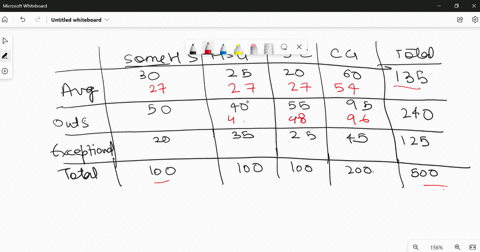 Microsoft Whiteboard
Untitled whiteboard
Some HS Total
30 25 20 60 135
Avg 27 27 27 54
50 40 55 95 240
Outs 4. 48 96
Exceptional 20 35 25 45 125
Total 100 100 100 200 500
156%